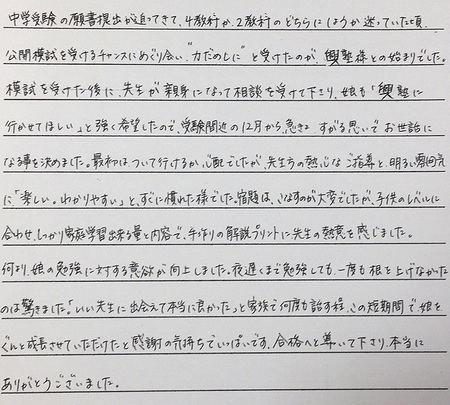 中学受験の願書提出が迫ってきて、4教科か、2教科のどちらにしようか迷っていた頃、
公開模試を受けるチャンスにめぐり会い"力だめしに"と受けたのが、興塾様との始まりでした。
模試を受けた後に、先生が親身になって相談を受けて下さり、娘も「興塾に
行かせてほしい」と強く希望したので、受験間近の12月から、急きょすがる思いでお世話に
なる事を決めました。最初はついて行けるか心配でしたが、先生方の熱心なご指導と、明るい雰囲気
に「楽しい。わかりやすい」と、すぐに慣れた様でした。宿題は、こなすのが大変でしたが、子供のレベルに
合わせ、しっかり家庭学習出来る量と内容で、手作りの解説プリントに先生の熱意を感じました。
何より、娘の勉強に対する意欲が向上しました。夜遅くまで勉強しても、一度も根を上げなかった
のは驚きました。「いい先生に出会えて本当に良かった」と家族で何度も話す程、この短期間で娘を
ぐんと成長させていただけたと感謝の気持ちでいっぱいです。合格へと導いて下さり、本当に
ありがとうございました。